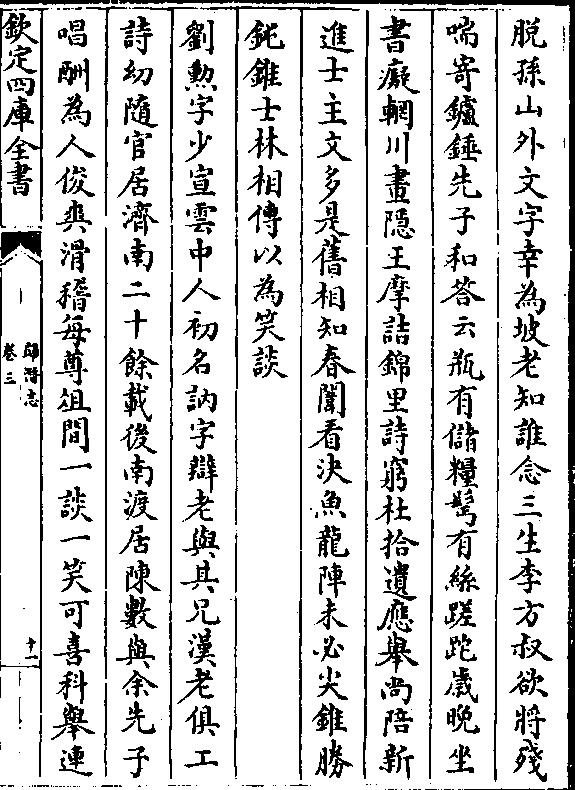 脱孫山外文字幸為坡老知誰念三生李方叔欲將殘
喘寄鑪錘先子和答云瓶有儲糧髩有絲蹉跎歲晚坐
書癡輞川畫隠王摩詰錦里詩窮杜拾遺應舉尚陪新
進士主文多是舊相知春闈看決魚龍陣未必尖錐勝
鈍錐士林相傳以為笑談
劉勲字少宣雲中人初名訥字辯老與其兄漢老俱工
詩幼隨官居濟南二十餘載後南渡居陳數與余先子
唱酬為人俊爽滑稽每尊俎間一談一笑可喜科舉連
欽定四庫全書
歸潛志
卷三
十一